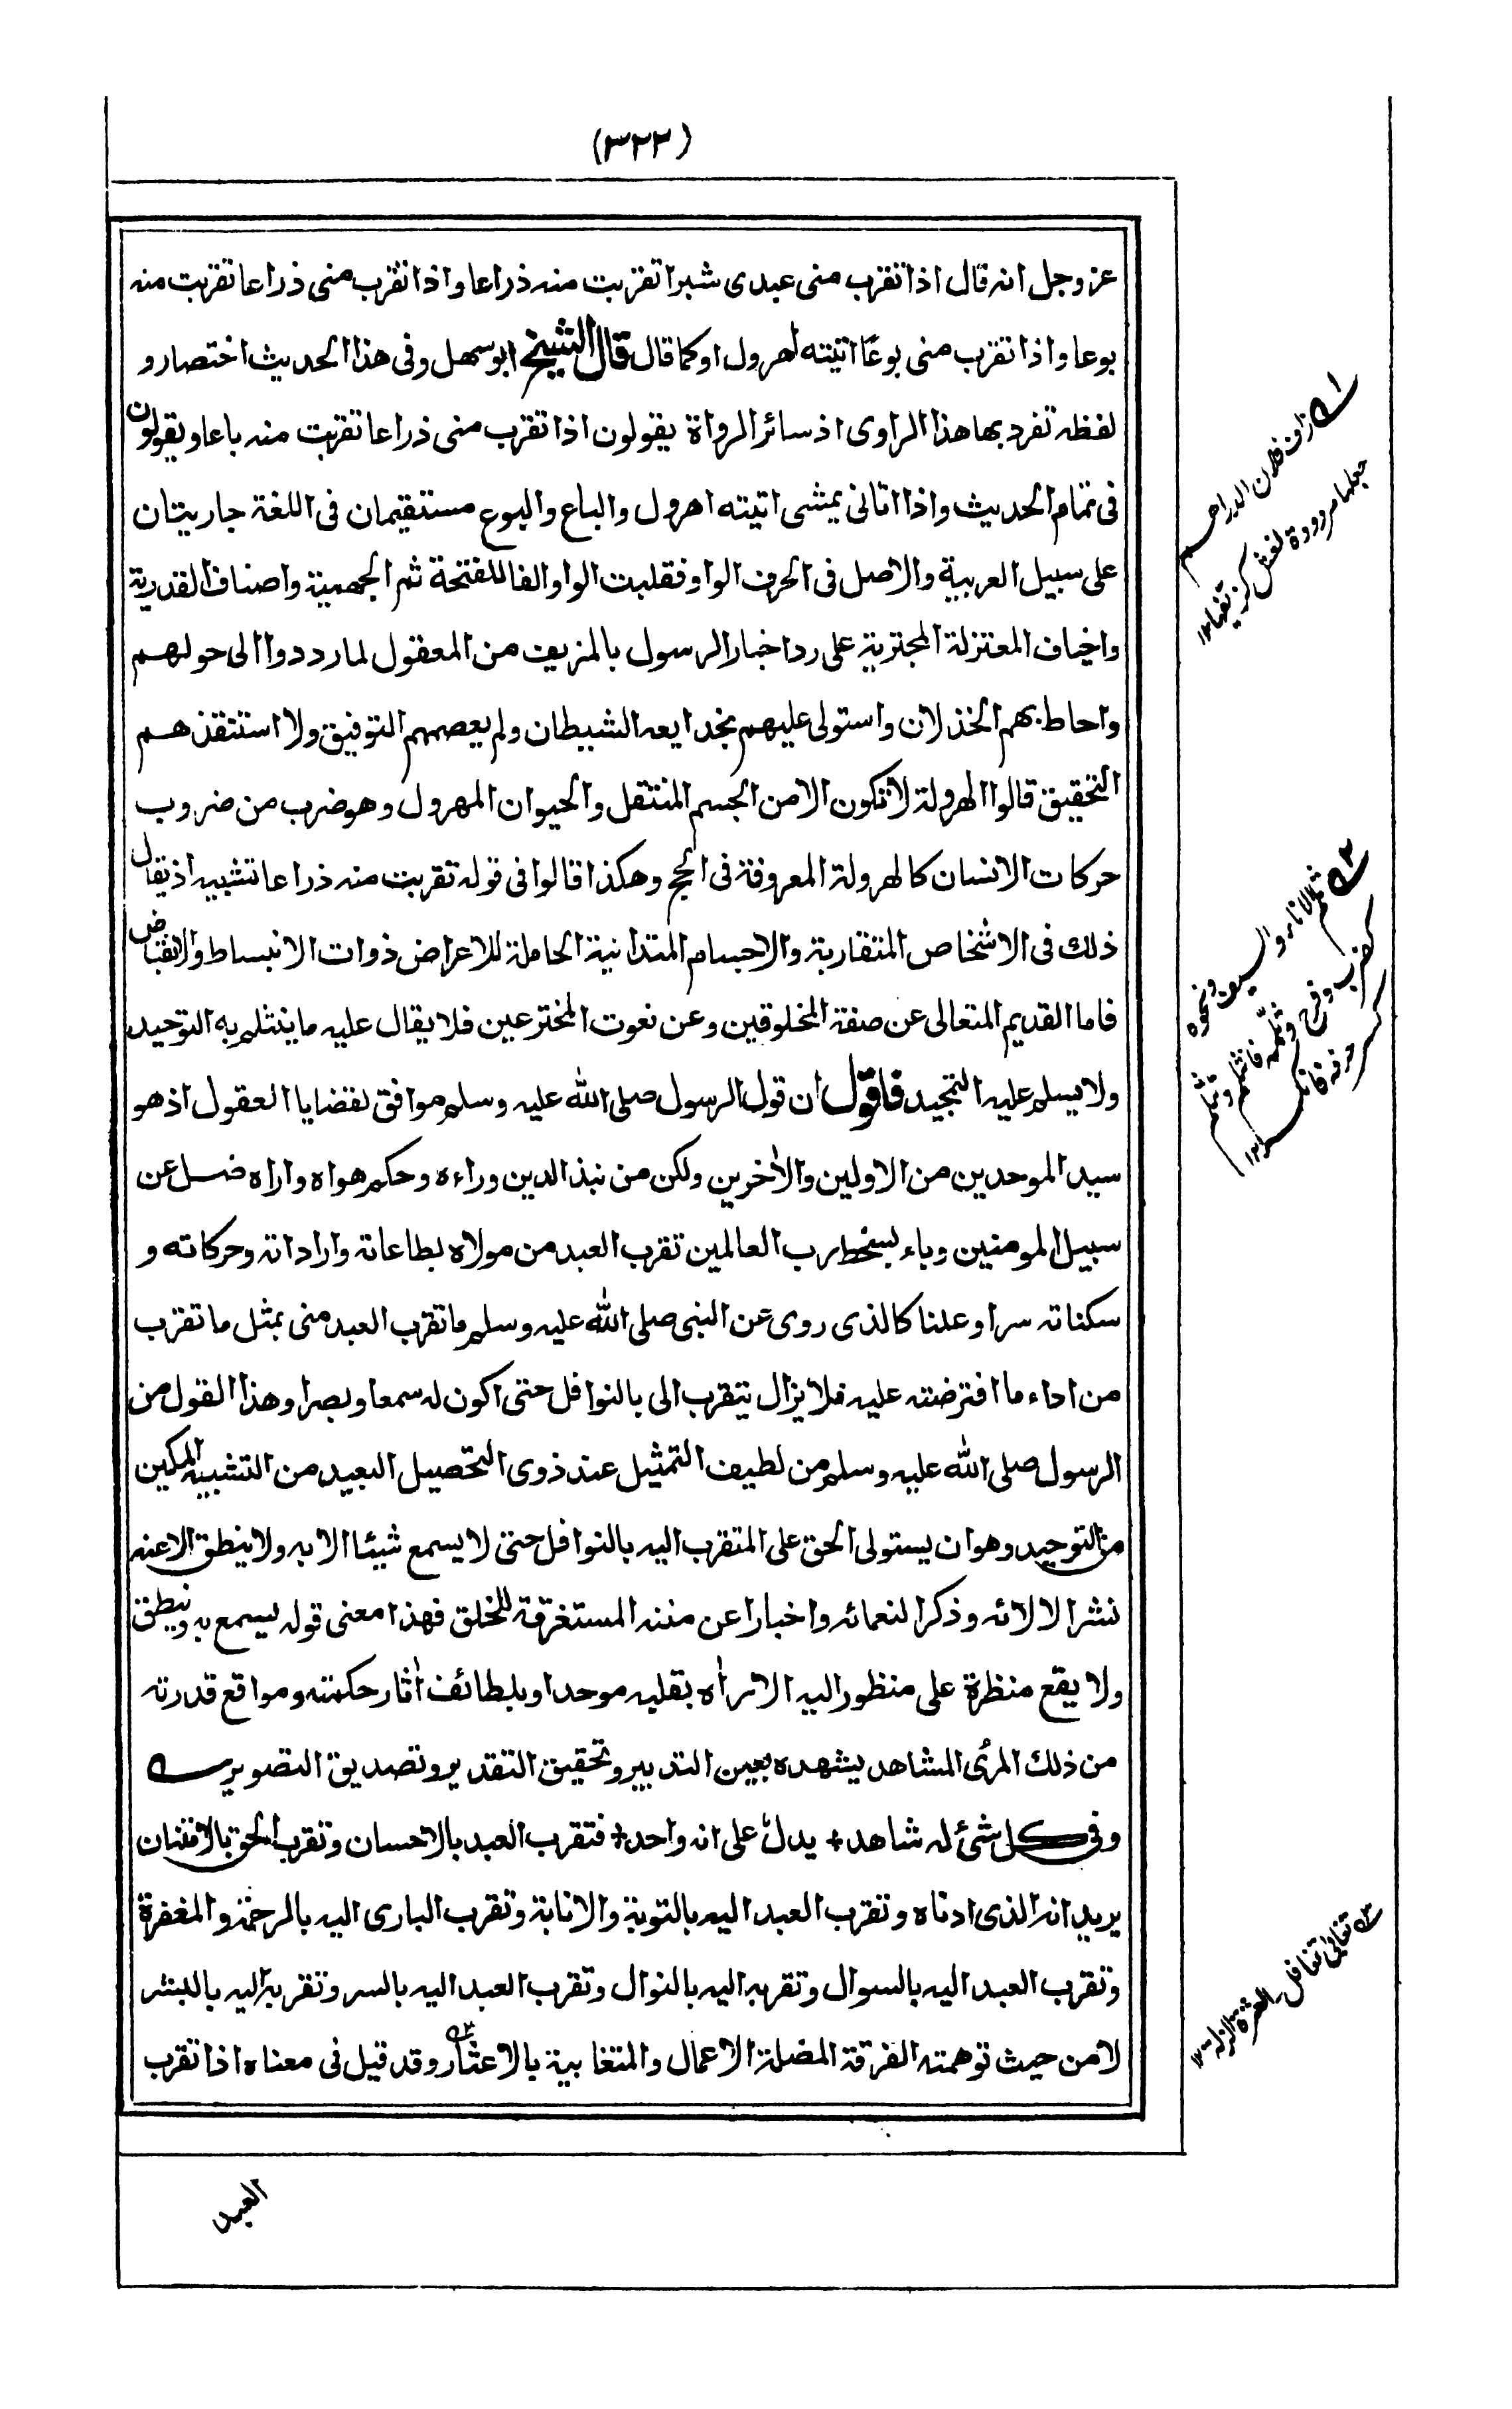 (٣٢٢)
عز وجل انه قال اذا تقرب منى عبدى شبرا تقربت منه ذراعا واذا تقرب منى ذراعا تقربت منه
بوعا واذا تقرب منى بوعًا اتيته اهرول او كما قال قال الشيخ ابو سهل وفى هذا الحديث اختصار و
لفظه تفرد بها هذا الراوى اذ سائر الرواة يقولون اذا تقرب منى ذراعا تقربت منه باعا ويقولون
فى تمام الحديث واذا اتانى يمشى اتيته اهرول والباع والبوع مستقيمان فى اللغة جاريتان
على سبيل العربية والاصل فى الحرف الواو فقلبت الواو الفا للفتحة ثم الجهمية واصناف القدرية
واخياف المعتزلة المجترية على رد اخبار الرسول بالمزيف من المعقول لما رددوا الى حولهم
واحاط بهم الخذلان واستولى عليهم بخدايعه الشيطان ولم يعصمهم التوفيق ولا استنقذهم
التحقيق قالوا الهرولة لا تكون الا من الجسم المنتقل والحيوان المهرول وهو ضرب من ضروب
حركات الانسان كالهرولة المعروفة فى الحج وهكذا قالوا فى قوله تقربت منه ذراعا تشبيه اذ يقال
ذلك فى الاشخاص المتقاربة والاجسام المتدانية الحاملة للاعراض ذوات الانبساط والانقباض
فاما القديم المتعالى عن صفة المخلوقين وعن نعوت المخترعين فلا يقال عليه ما ينثلم به التوحيد
ولا يسلم عليه التمجيد فاقول ان قول الرسول صلى الله عليه وسلم موافق لقضايا العقول اذ هو
سيد الموحدين من الاولين والاٰخرين ولكن من نبذ الدين وراءه وحكم هواه واراه ضل عن
سبيل المومنين وباء بسخط رب العالمين تقرب العبد من مولاه بطاعاته واراداته وحركاته و
سكناته سرا وعلنا كالذى روى عن النبى صلى الله عليه وسلم ما تقرب العبد منى بمثل ما تقرب
من اداء ما افترضته عليه فلا يزال يتقرب الى بالنوافل حتى اكون له سمعا وبصرا وهذا القول من
الرسول صلى الله عليه وسلم من لطيف التمثيل عند ذوى التحصيل البعيد من التشبيه المكين
من التوحيد وهو ان يستولى الحق على المتقرب اليه بالنوافل حتى لا يسمع شيئا الا به ولا ينطق الا عنه
نشرا لالائه وذكرا لنعمائه واخبارا عن مننه المستغرقة للخلق فهذا معنى قوله يسمع به وينطق
ولا يقع منظرة على منظور اليه الا راٰه بقلبه موحدا وبلطائف اٰثار حكمته ومواقع قدرته
من ذلك المرئى المشاهد يشهده بعين التدبير وتحقيق التقدير وتصديق التصوير ـه
وفى كل شئ له شاهد + يدل على انه واحد + فتقرب العبد بالاحسان وتقرب الحق بالامتنان
يريد انه الذى ادناه وتقرب العبد اليه بالتوبة والانابة وتقرب البارى اليه بالرحمة والمغفرة
وتقرب العبد اليه بالسوال وتقربه اليه بالنوال وتقرب العبد اليه بالسر وتقربه اليه بالبشر
لا من حيث توهمته الفرقة المضلة الاعمال والمتغابية بالاعثار وقد قيل فى معناه اذا تقرب
العبد
١ـه زاف فلان الدراهم
جعلها مردودة لغش كزيفها ١٢
٢ـه ثلم الاناء والسيف ونحوه
كضرب وفرح وثلّمه فانثلم وتثلم
كسر حرفه فانكسر ١٢